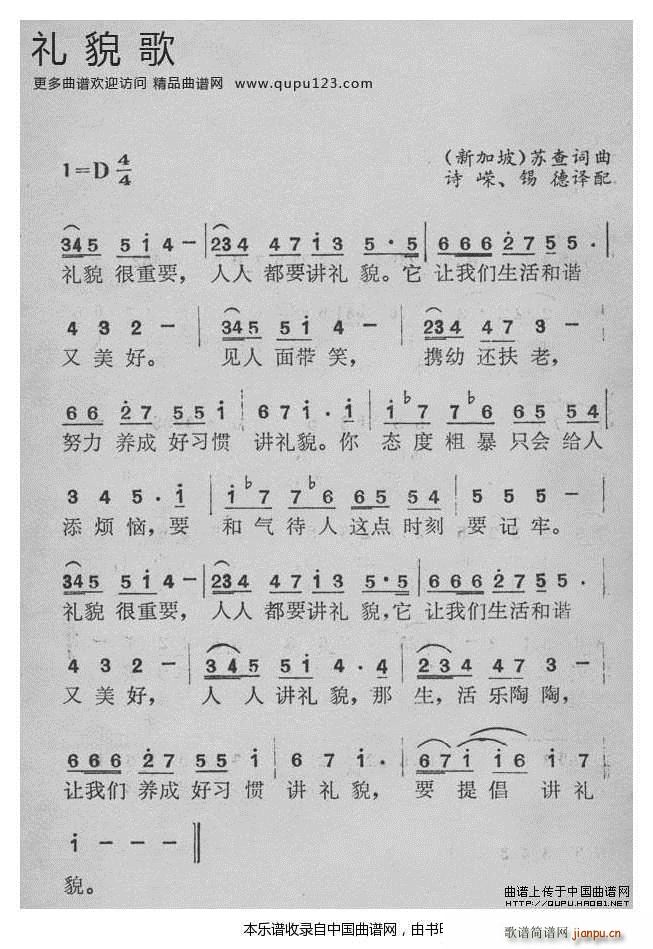 礼貌歌
更多曲谱欢迎访问 精品曲谱网 www.qupu123.com
1=D 4/4
(新加坡)苏查词曲
诗嵘、锡德译配
345 5i4- 234 47i3 5·5 666 2755.
礼貌很重要，人人都要讲礼貌。它让我们生活和谐
432- 345 5i4- 234 473-
又美好。见人面带笑，携幼还扶老，
66 27 55i 67i·i i♭7 7♭6 65 54
努力养成好习惯讲礼貌。你态度粗暴只会给人
345·i i♭7 ♭77 665 54 555-
添烦恼，要和气待人这点时刻要记牢。
345 5i4- 234 47i3 5·5 666 2755.
礼貌很重要，人人都要讲礼貌，它让我们生活和谐
432- 345 5i4·4 234 473-
又美好，人人讲礼貌，那生，活乐陶陶，
666 27 55i 67i· 67i i6 i7
让我们养成好习惯讲礼貌，要提倡讲礼
i---
貌。
曲谱上传于中国曲谱网
HTTP://QUPU.HAO81.NET
本乐谱收录自中国曲谱网，由书
歌谱简谱网 jianpu.cn